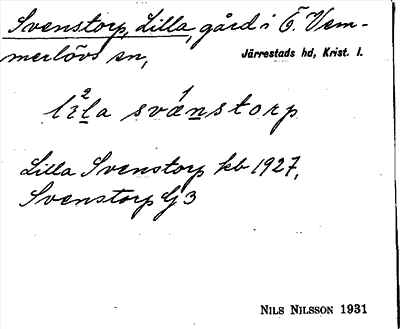 Svenstorp, Lilla, gård i Ö. Vem-
merlövs sn,
Järrestads hd, Krist. l.
lila svænstorp
Lilla Svenstorp kb 1927,
Svenstorp Gj 3
NILS NILSSON 1931